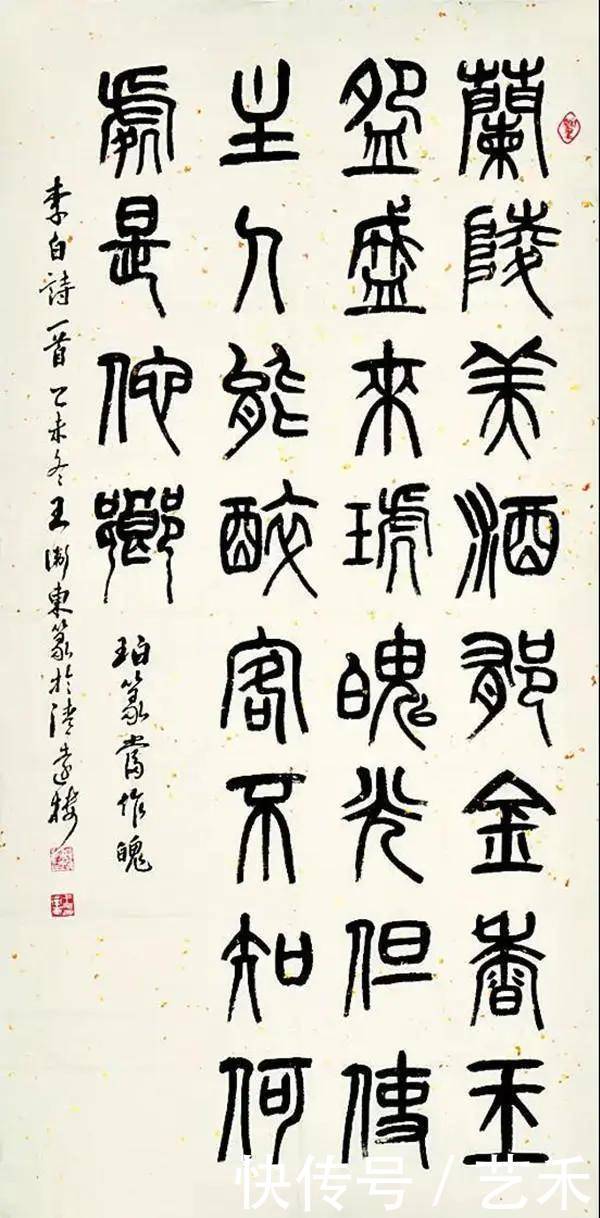 蘭陵美酒郁金香玉
盌盛來琥魄光但使
主人能醉客不知何
處是他鄉
珀篆當作魄
李白詩一首乙未冬王衛東篆於清遠樓
快传号 / 艺禾